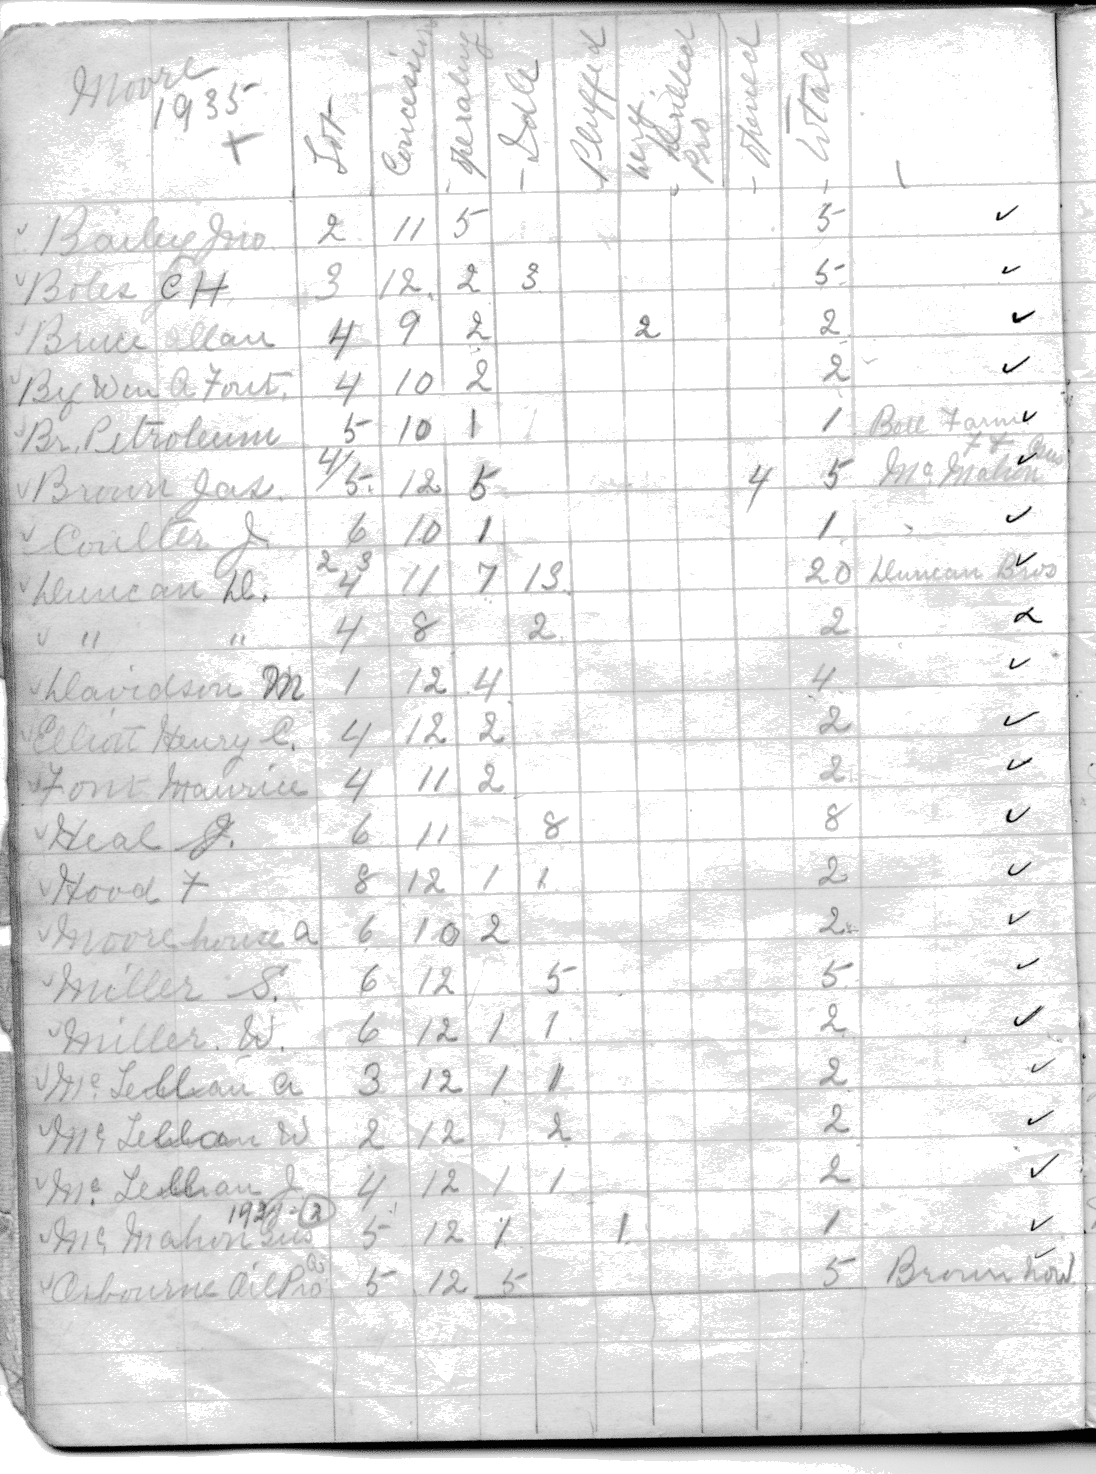 Moore
1935
+
Lot Concession operating - Idle Pluffed new drilled pro - opened - Total
✓ Bailey Jno. 2 11 5 5 ✓
✓ Boles C H 3 12 2 3 5 ✓
✓ Bruce Allan 4 9 2 2 2 ✓
By Wm A Font. 4 10 2 2 ✓
✓ Br. Petroleum 5 10 1 1 Boll Farm ✓
✓ Brown Jas. 4/5 12 5 4 5 Mc Mahon ✓
✓ Coulter J. 6 10 1 1 ✓
✓ Duncan D. 2 3 4 11 7 13 20 Duncan Bros ✓
✓ " " 4 8 2 2
✓ Davidson M 1 12 4 4 ✓
✓ Elliot Henry C. 4 12 2 2 ✓
✓ Font Maurice 4 11 2 2 ✓
✓ Heal J. 6 11 8 8 ✓
✓ Hood F 8 12 1 1 2 ✓
✓ Moorehouse a 6 10 2 2 ✓
✓ Miller S. 6 12 5 5 ✓
✓ Miller. W. 6 12 1 1 2 ✓
✓ Mc Lellan a 3 12 1 1 2 ✓
✓ Mc Lellan W 2 12 2 2 ✓
✓ Mc Lellan J 4 12 1 1 2 ✓
✓ Mc Mahon Gus 5 12 1 1 1 ✓
✓ Osbourne Oil Pro 5 12 5 5 Brown now ✓